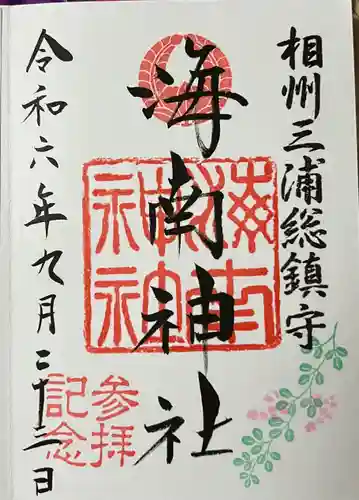 相州三浦総鎮守
海南神社
海南
神社
参拝
記念
令和六年九月二十二日